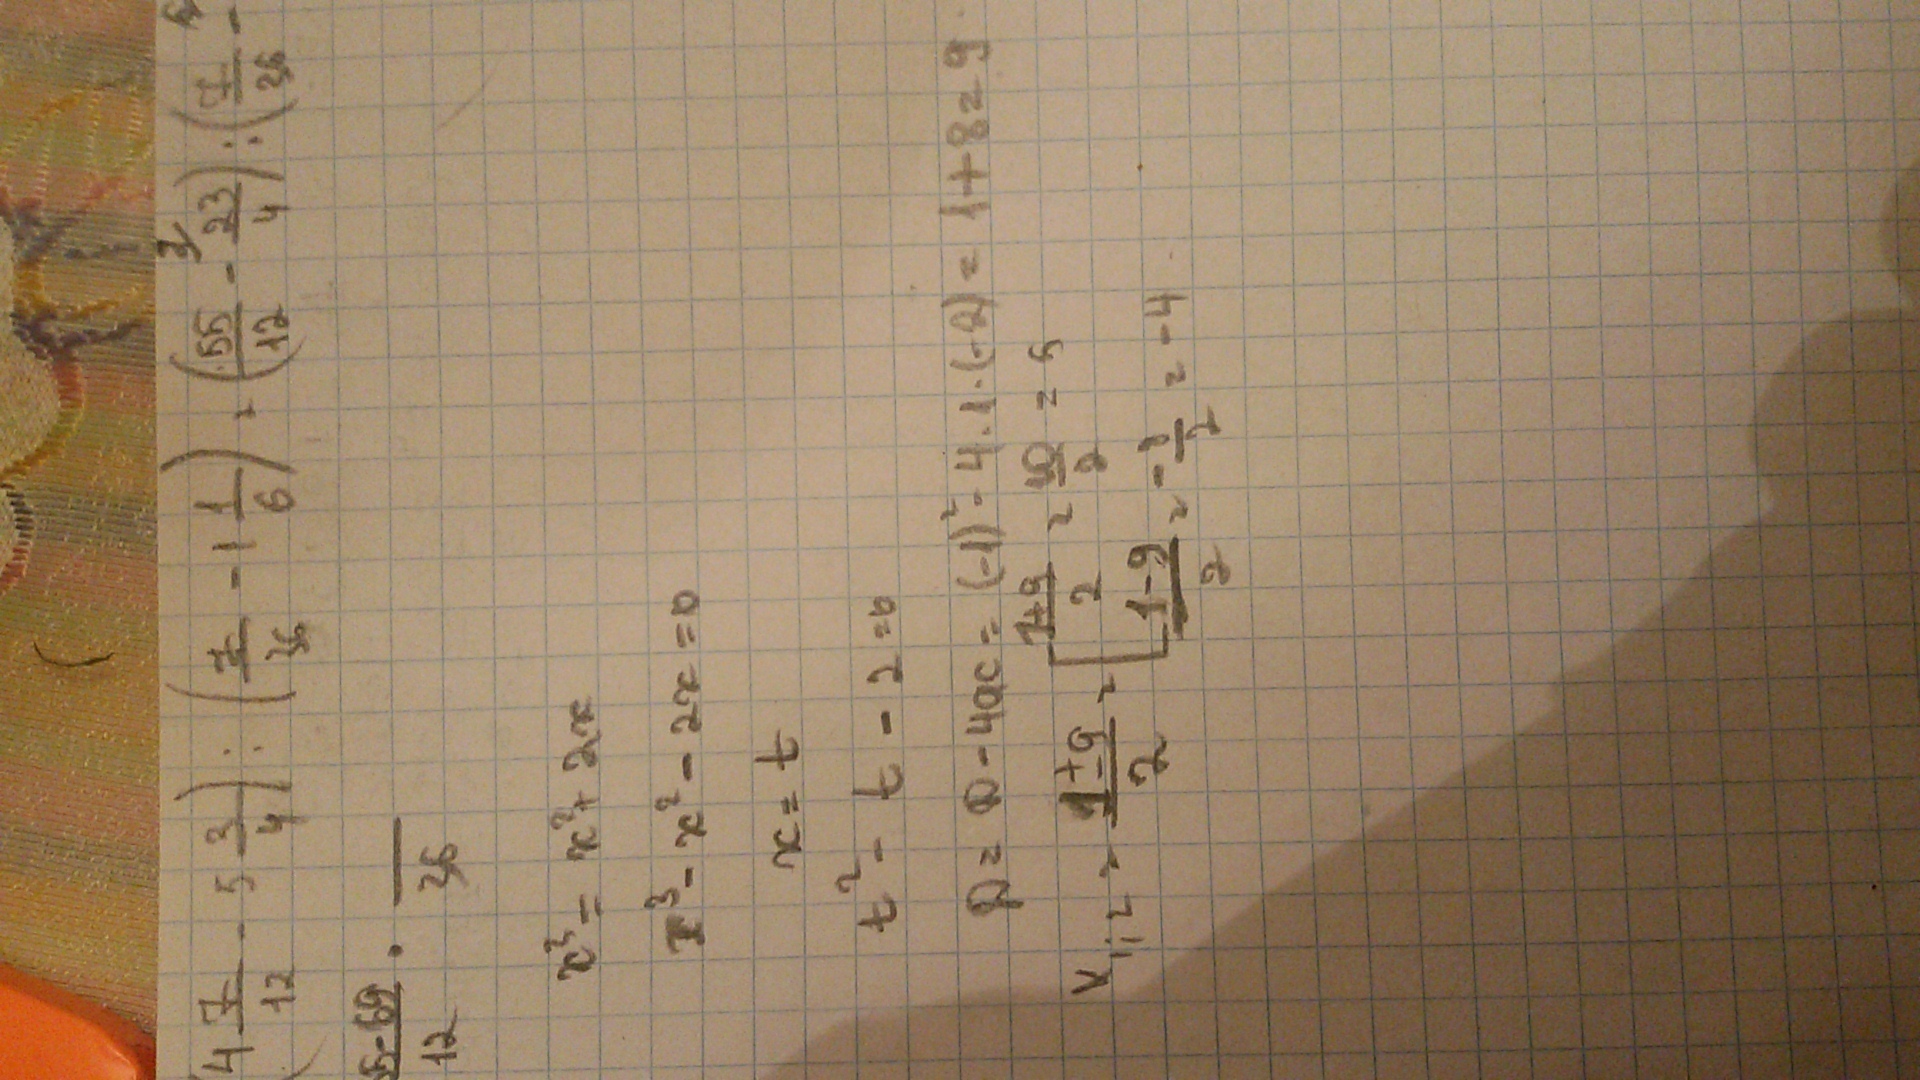 (4 7/12 - 5 3/4) : (7/36 - 1 1/6) = (55/12 - 23/4) : (7/36 -
5-69/12 · —/36
x³ = x² + 2x
x³ - x² - 2x = 0
x = t
t² - t - 2 = 0
D = D - 4ac = (-1)² - 4·1·(-2) = 1+8=9
x₁,₂ = 1±9/2 = [ 1+9/2 = 10/2 = 5
1-9/2 = - /2 = -4